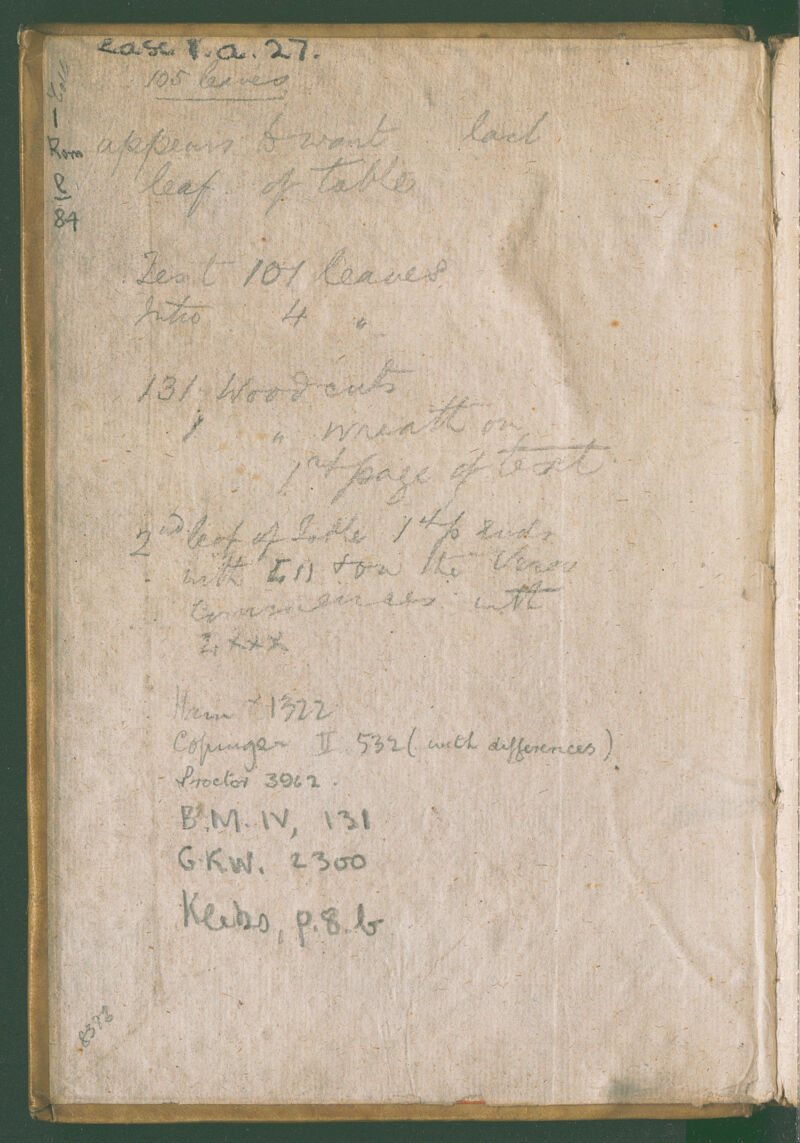 case 1.a.27.
105 leaves
1
Rom
84
appears to want last
leaf of table
Text 101 leaves
Intro 4 "
131 Woodcuts
1 " wreath on
1st page of text
2nd leaf of Table 1st p ends
with on the Verso
commences with
Hain * 1322
Copinger II 532 (with differences)
Proctor 3962.
B.M. IV, 131
G.K.W. 2300
Klebs, p.8.b
8373